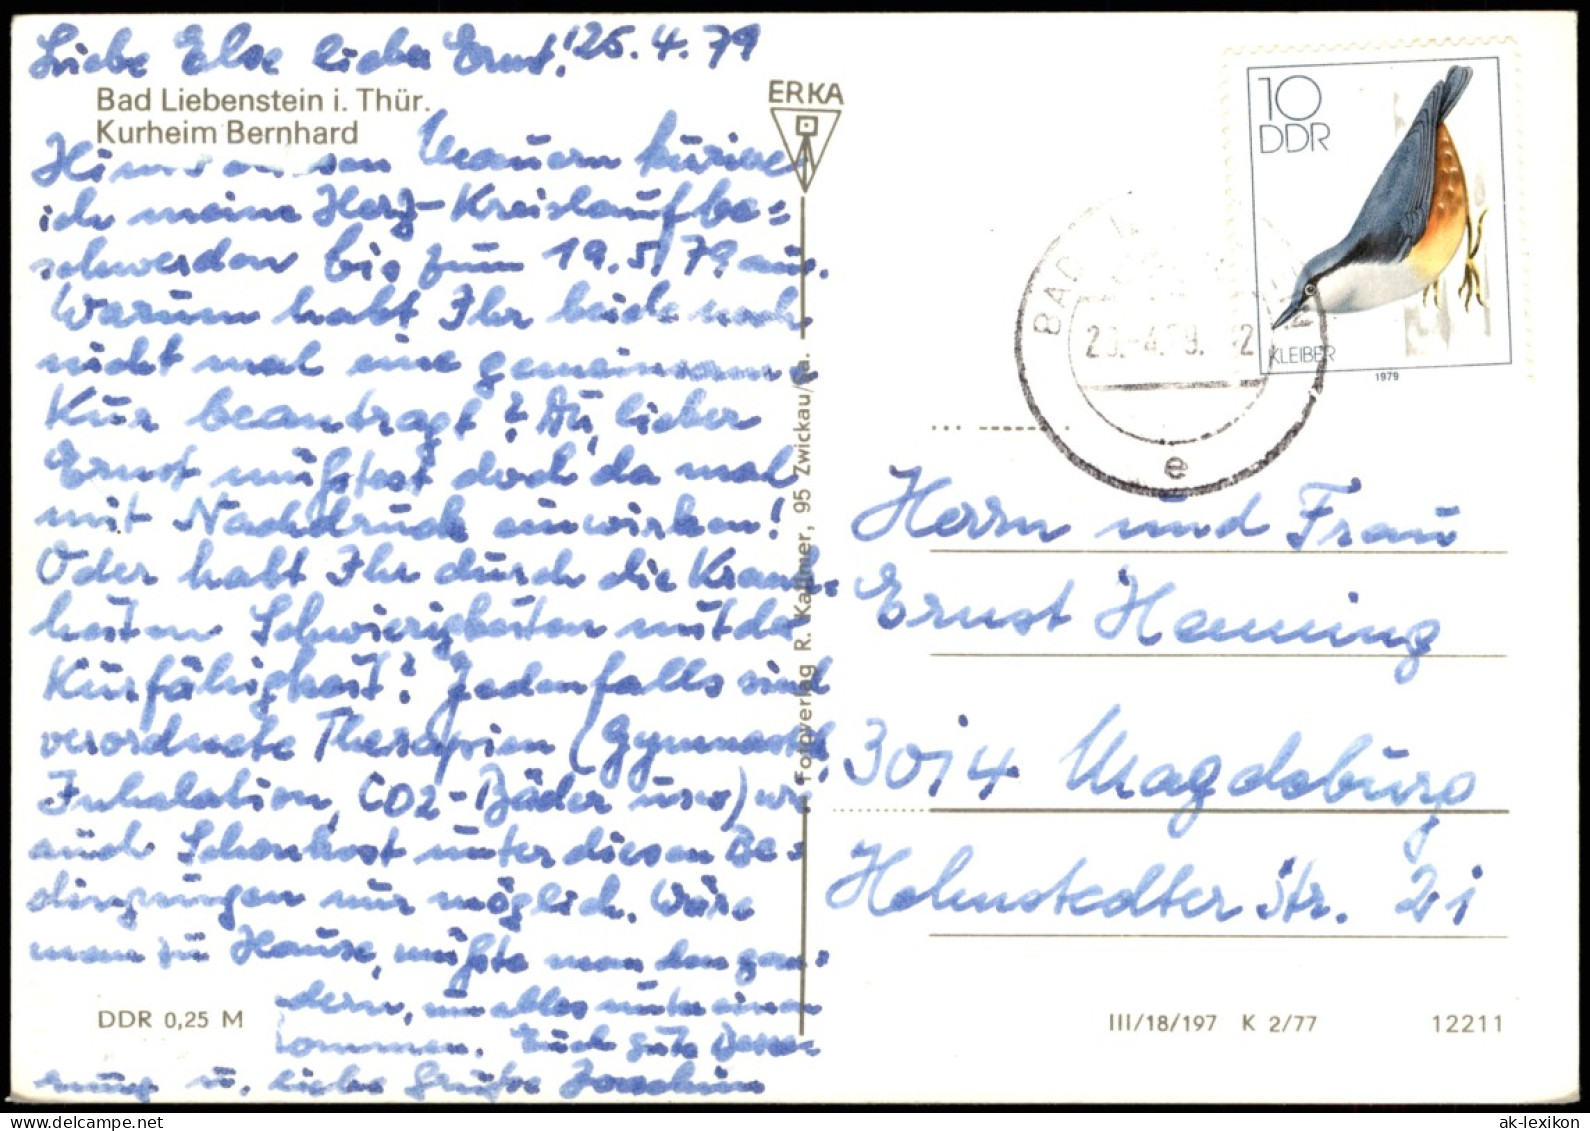 Liebe Else lieber Ernst! 26.4.79
Bad Liebenstein i. Thür.
Kurheim Bernhard
Mauern kuriere
ich meine Herz-Kreislaufbe=
schwerden bis zum 19.5.79 aus.
Warum habt Ihr beide noch
nicht mal eine gemeinsame
Kur beantragt? Du, lieber
Ernst müßtest doch da mal
mit Nachdruck einwirken!
Oder habt Ihr durch die Krank=
heiten Schwierigkeiten mit der
Kurfähigkeit? Jedenfalls sind
verordnete Therapien (Gymnastik
Inhalation, CO2-Bäder usw) wie
auch Schonkost unter diesen Be=
dingungen nur möglich. Wäre
man zu Hause, müßte man den gan=
dern, um alles unter einen
kommen. Euch gute Besse
rung u. liebe Grüße Joachim
DDR 0,25 M
ERKA
Fotoverlag R. Kallmer, 95 Zwickau/Sa.
10
DDR
KLEIBER
1979
BAD
e
Herrn und Frau
Ernst Henning
3014 Magdeburg
Helmstedter Str. 21
III/18/197 K 2/77 12211
ak-lexikon